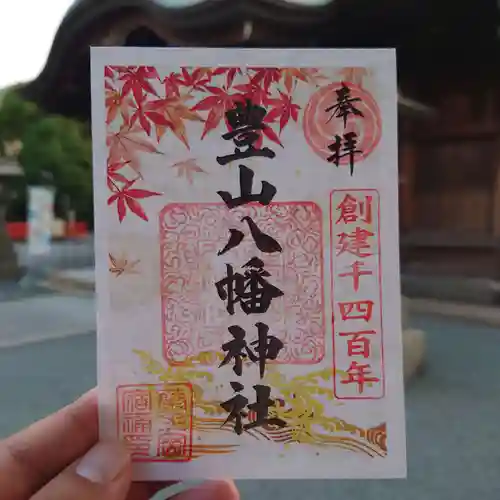 奉拝
創建千四百年
豊山八幡神社